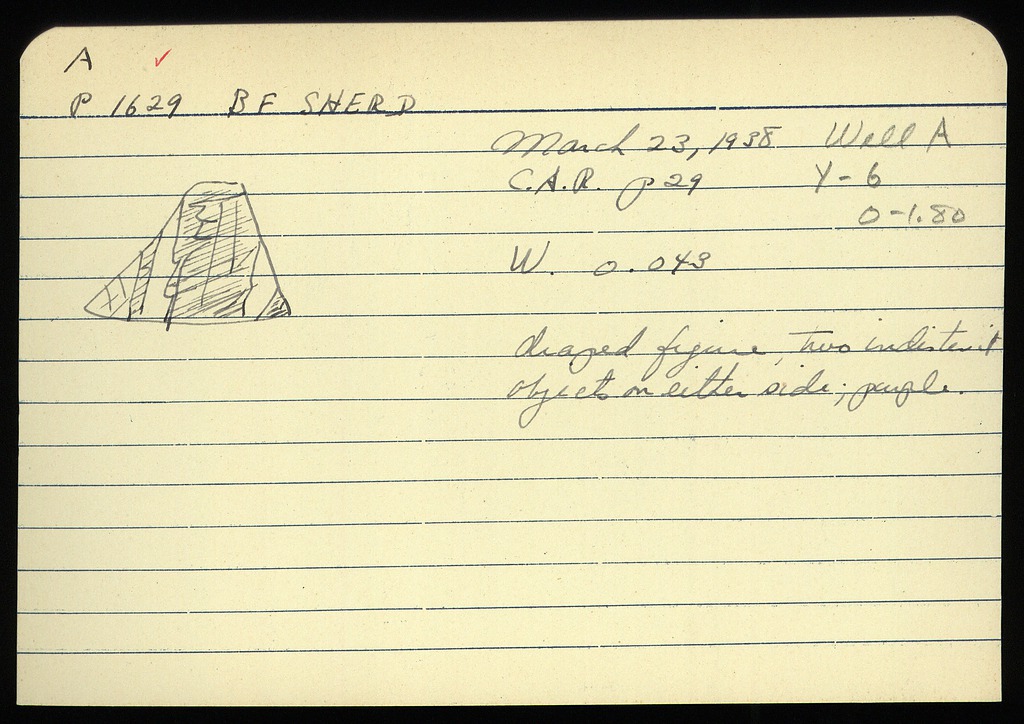 A ✓
P 1629 BF SHERD
March 23, 1938 Well A
C.A.R. p 29 Y-6
0-1.80
W. 0.043
draped figure, two indistinct
objects on either side; purple.